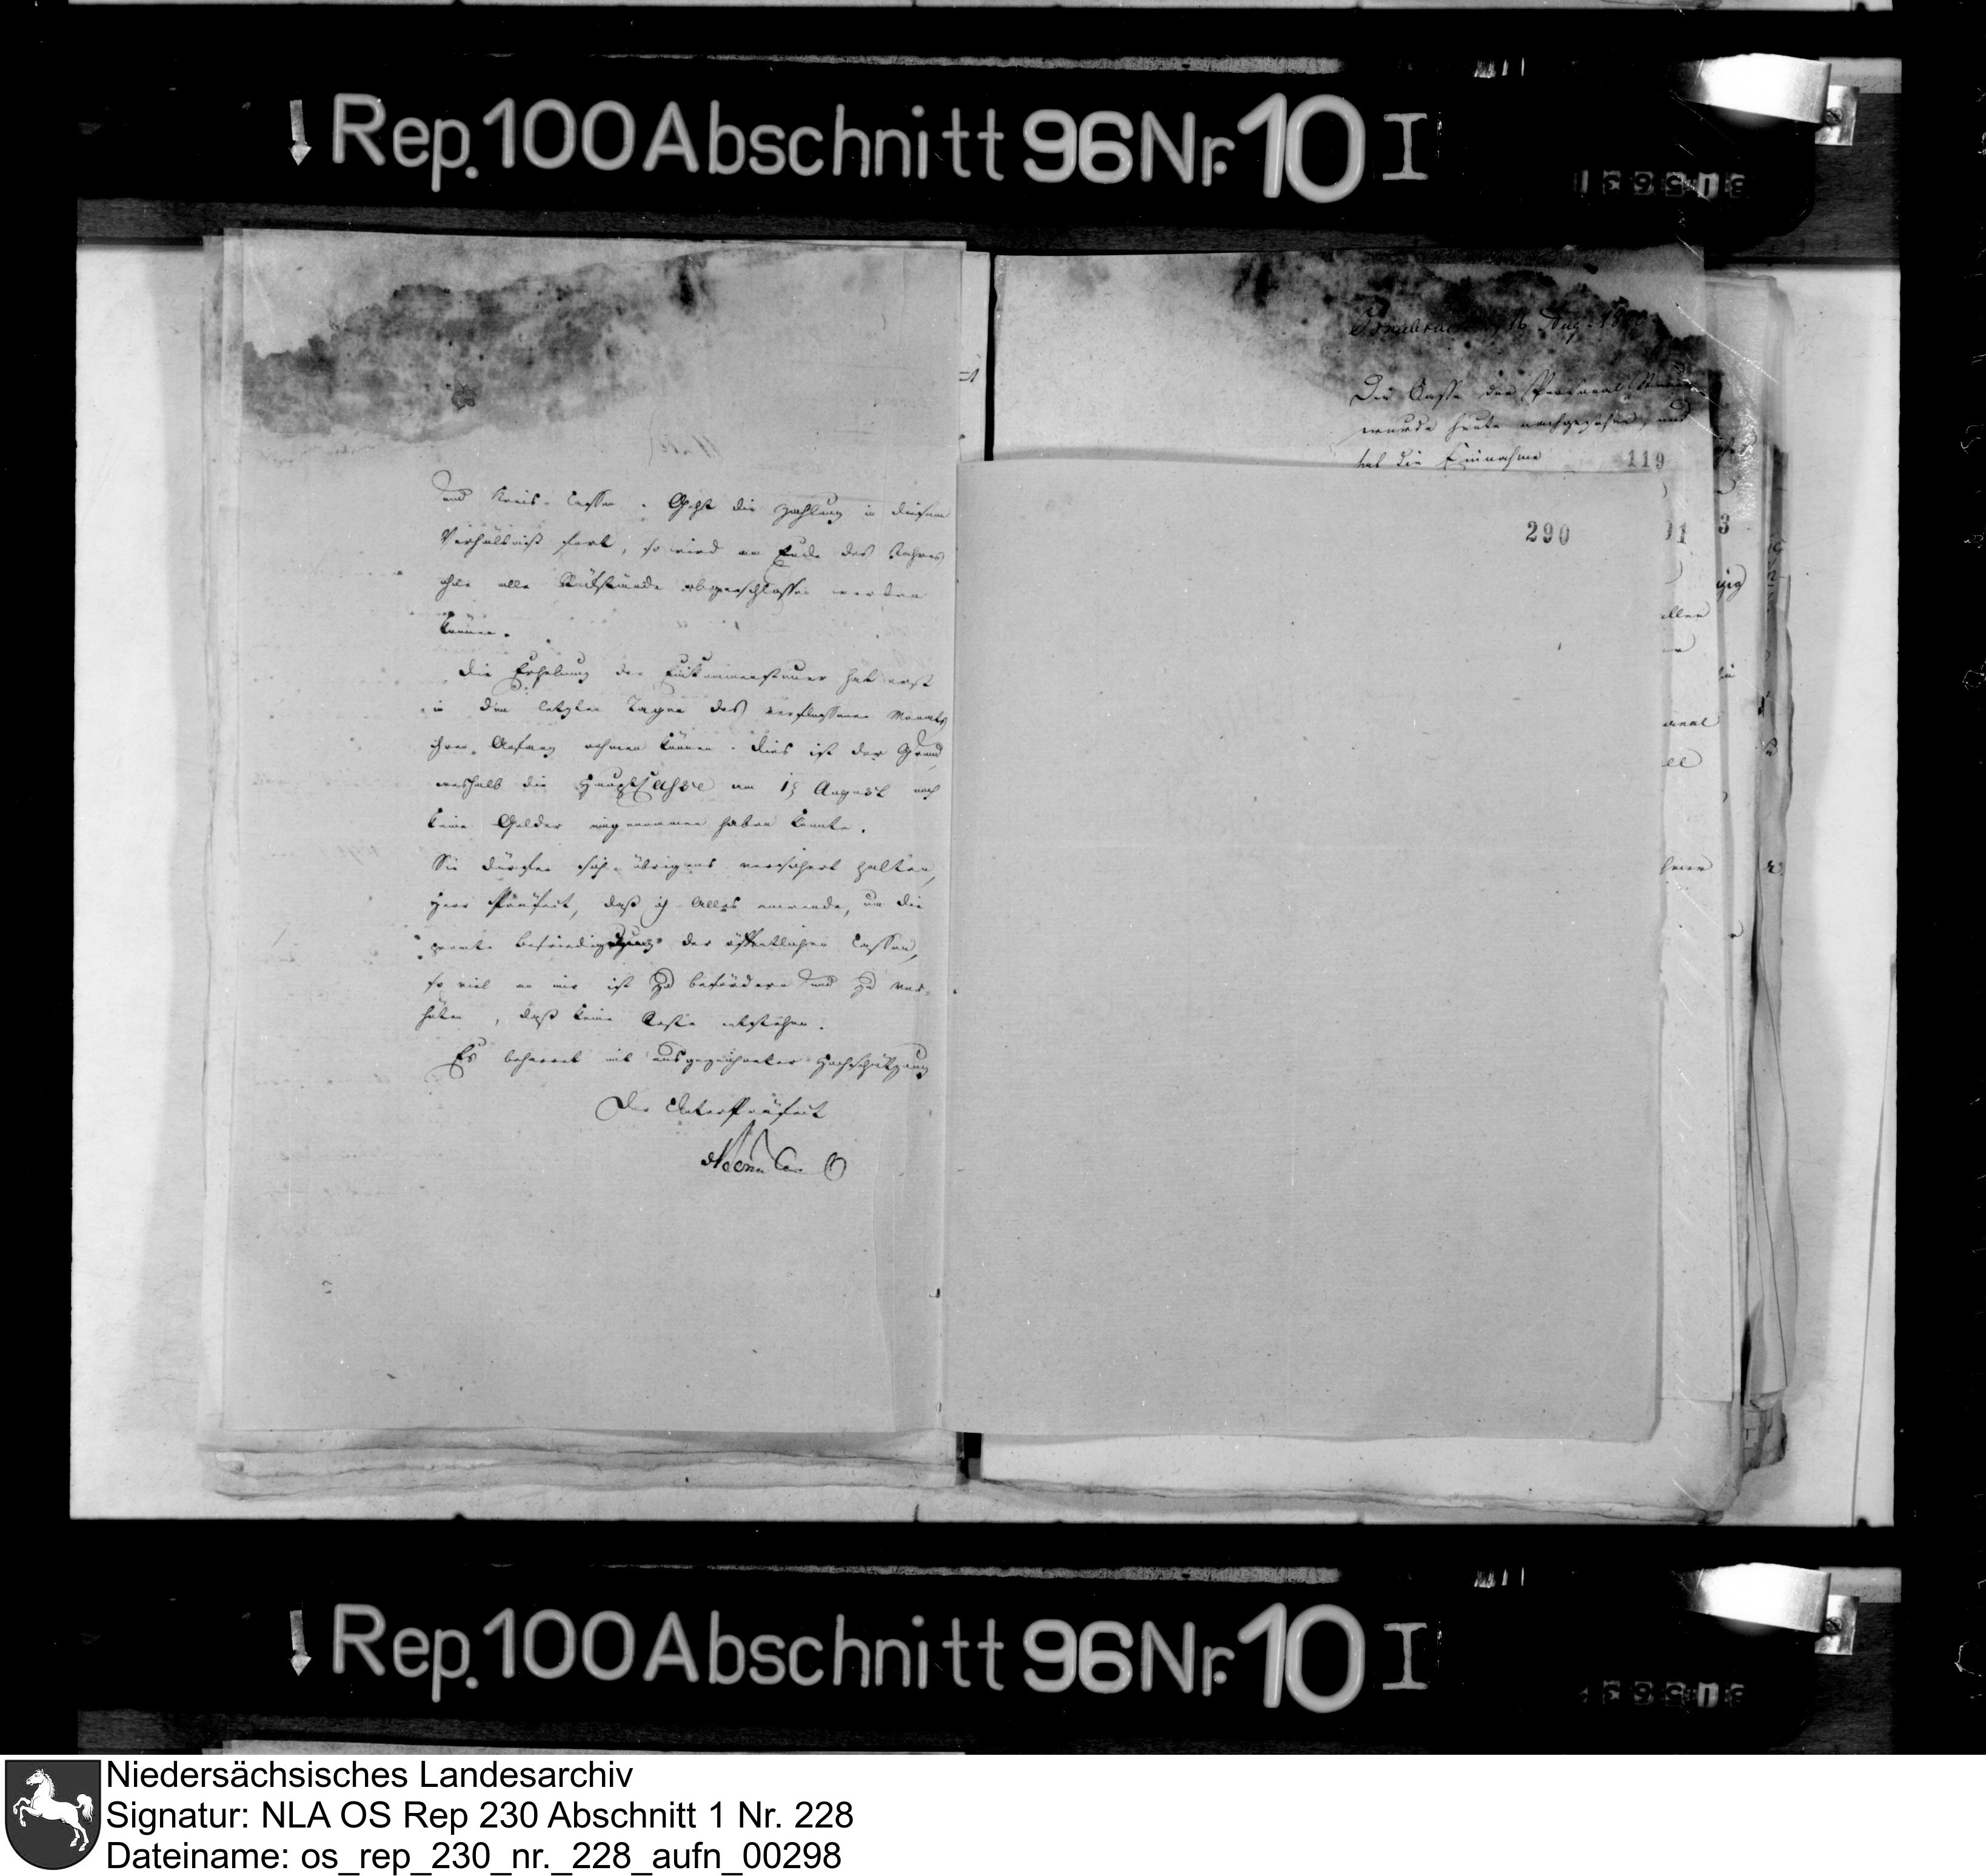 Rep. 100 Abschnitt 96 Nr. 10 I
und Kreis-Cassen. Geht die Zahlung in diesem
Verhältniß fort, so wird am Ende des Jahres
ohne alle Rückstände abgeschlossen werden
können.
Die Erhebung der Einkommensteuer hat erst
in den letzten Tagen des verflossenen Monats
ihren Anfang nehmen können. Dies ist der Grund
weshalb die Hauptcasse am 15 August noch
keine Gelder eingenommen haben konnte.
Sie dürfen sich übrigens versichert halten,
Herr Präfect, daß ich Alles anwende, um die
promte Befriedigung der öffentlichen Cassen,
so viel an mir ist zu befördern und zu ver-
hüten, daß keine Reste entstehen.
Es beharret mit ausgezeichneter Hochschätzung
Der UnterPräfect
Osnabrück 16 Aug.
Die Casse der Personal
wurde heute nachgesehen, und
hat die Einnahme
119
290
91
3
Rep. 100 Abschnitt 96 Nr. 10 I
Niedersächsisches Landesarchiv
Signatur: NLA OS Rep 230 Abschnitt 1 Nr. 228
Dateiname: os_rep_230_nr._228_aufn_00298